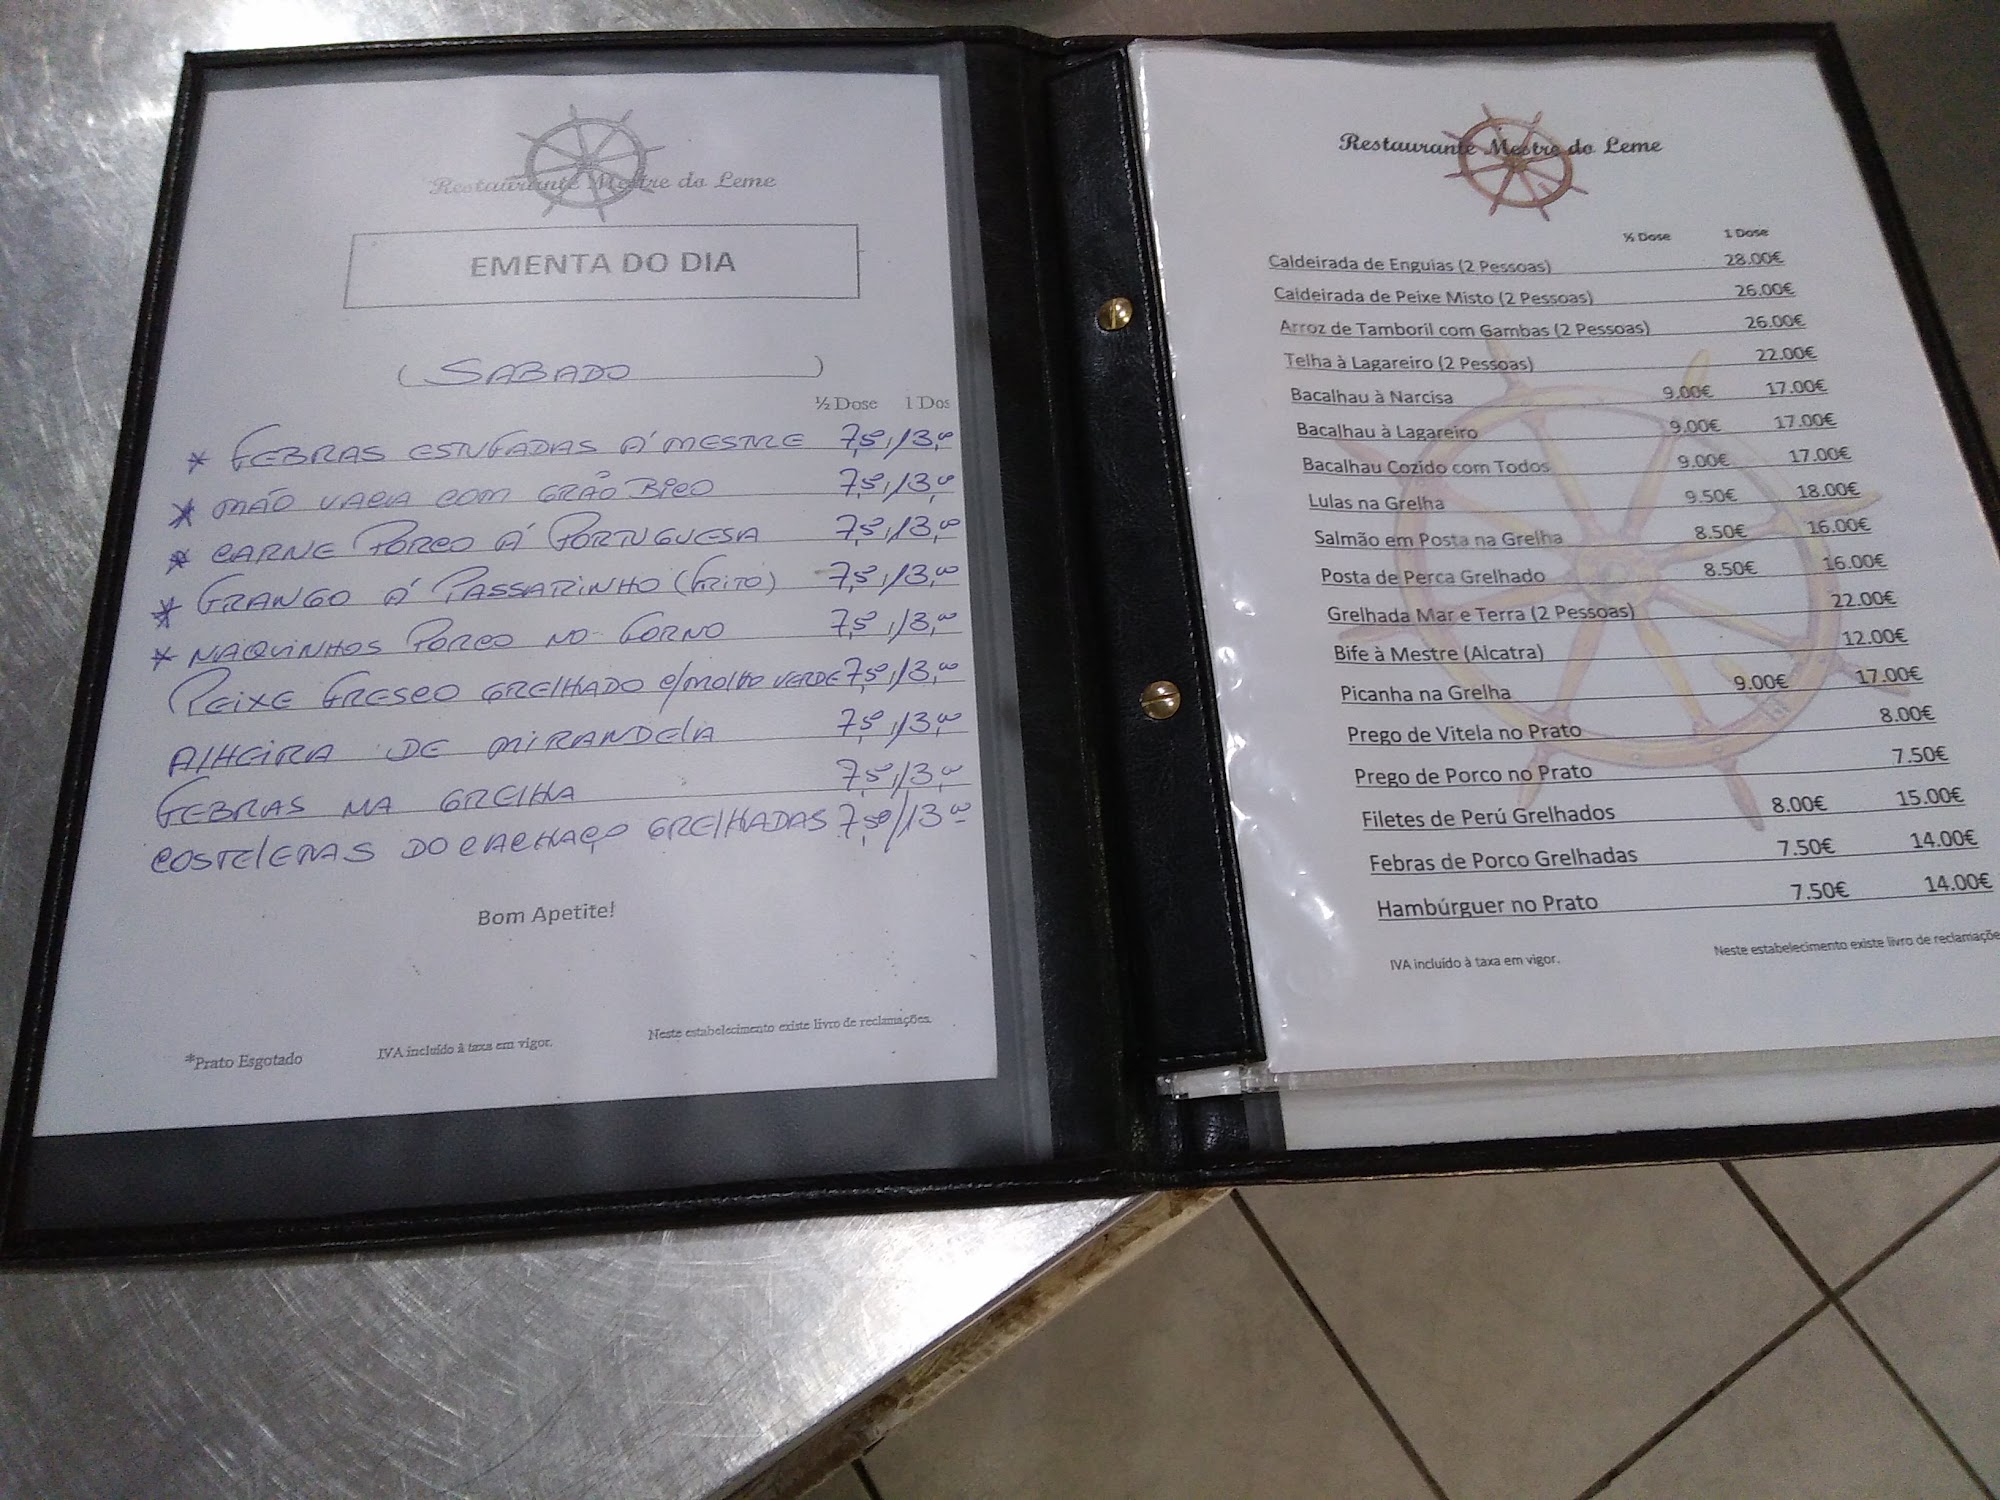 Restaurante Mestre do Leme
EMENTA DO DIA
(SABADO)
½ Dose 1 Dos
* FEBRAS ESTUFADAS Á MESTRE 7,50/13,00
* MÃO VACA COM GRÃO BICO 7,50/13,00
* CARNE PORCO Á PORTUGUESA 7,50/13,00
* FRANGO Á PASSARINHO (FRITO) 7,50/13,00
* NAQUINHOS PORCO NO FORNO 7,50/13,00
PEIXE FRESCO GRELHADO C/MOLHO VERDE 7,50/13,00
ALHEIRA DE MIRANDELA 7,50/13,00
FEBRAS NA GRELHA 7,50/13,00
COSTELETAS DO CACHAÇO GRELHADAS 7,50/13,00
Bom Apetite!
*Prato Esgotado IVA incluído à taxa em vigor. Neste estabelecimento existe livro de reclamações.
Restaurante Mestre do Leme
½ Dose 1 Dose
Caldeirada de Enguias (2 Pessoas) 28.00€
Caldeirada de Peixe Misto (2 Pessoas) 26.00€
Arroz de Tamboril com Gambas (2 Pessoas) 26.00€
Telha à Lagareiro (2 Pessoas) 22.00€
Bacalhau à Narcisa 9.00€ 17.00€
Bacalhau à Lagareiro 9.00€ 17.00€
Bacalhau Cozido com Todos 9.00€ 17.00€
Lulas na Grelha 9.50€ 18.00€
Salmão em Posta na Grelha 8.50€ 16.00€
Posta de Perca Grelhado 8.50€ 16.00€
Grelhada Mar e Terra (2 Pessoas) 22.00€
Bife à Mestre (Alcatra) 12.00€
Picanha na Grelha 9.00€ 17.00€
Prego de Vitela no Prato 8.00€
Prego de Porco no Prato 7.50€
Filetes de Perú Grelhados 8.00€ 15.00€
Febras de Porco Grelhadas 7.50€ 14.00€
Hambúrguer no Prato 7.50€ 14.00€
IVA incluído à taxa em vigor. Neste estabelecimento existe livro de reclamaçõe